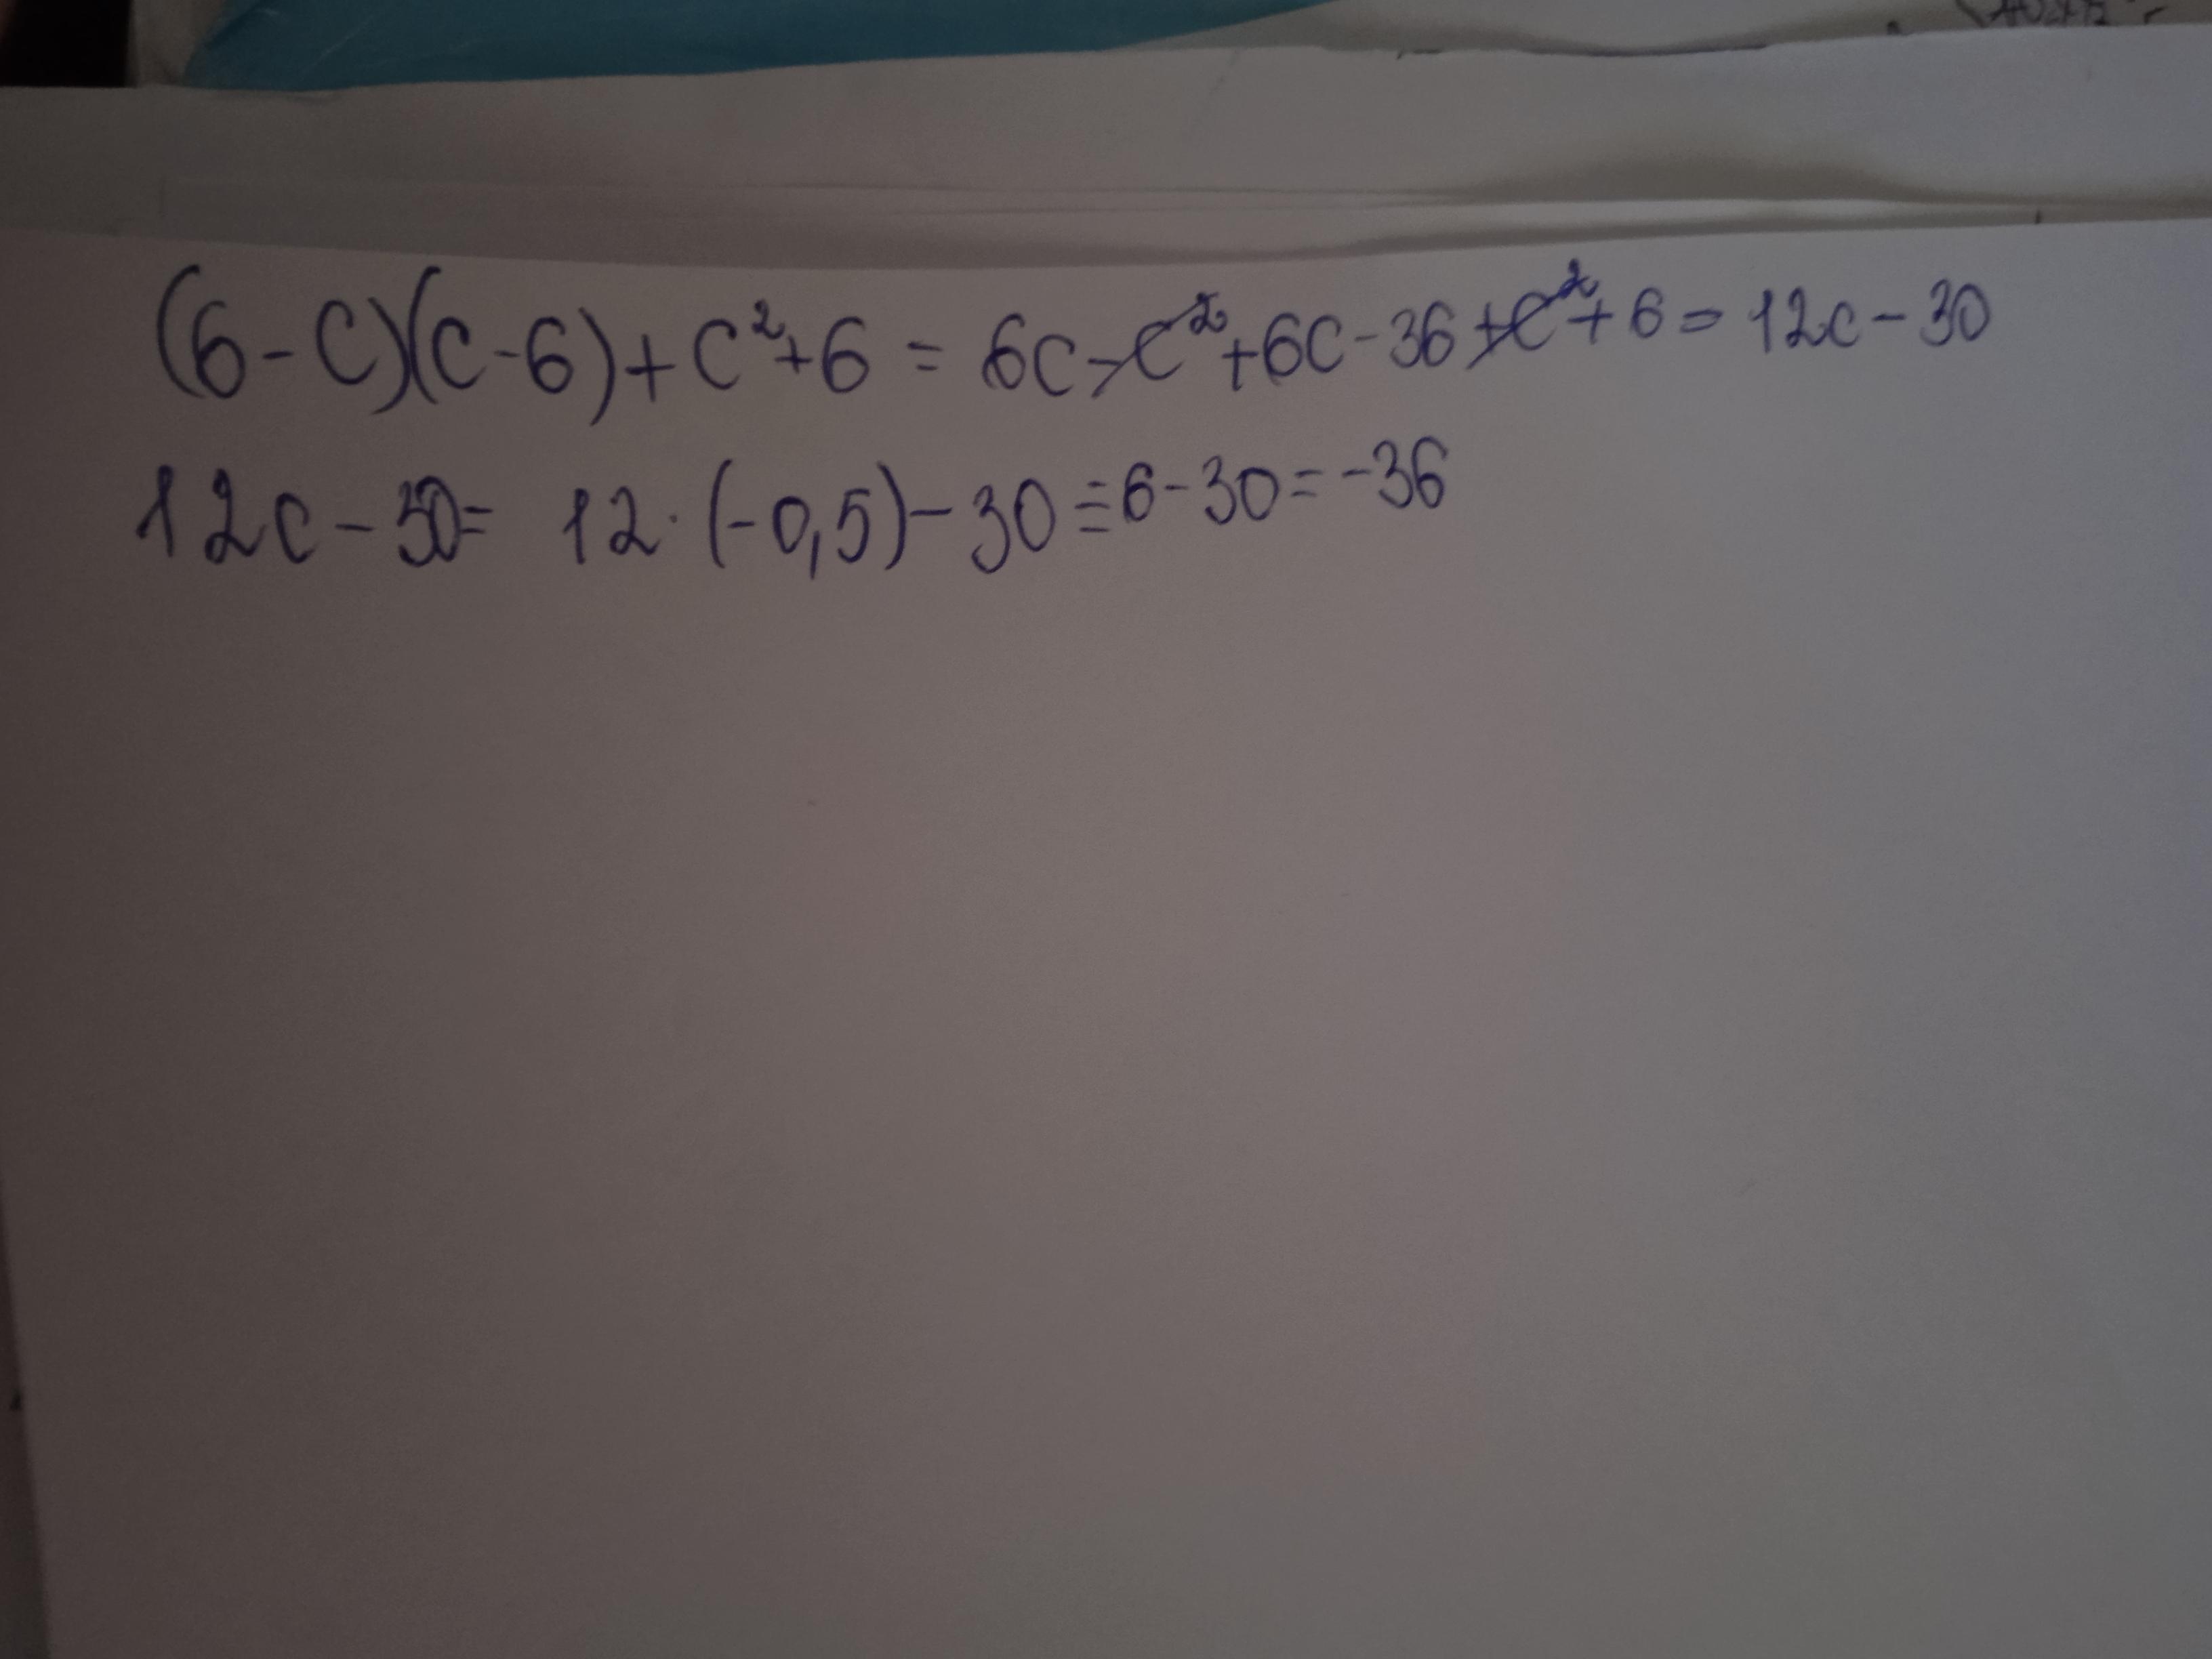 (6-c)(c-6)+c²+6 = 6c-c²+6c-36+c²+6=12c-30
12c-30= 12·(-0,5)-30=-6-30=-36